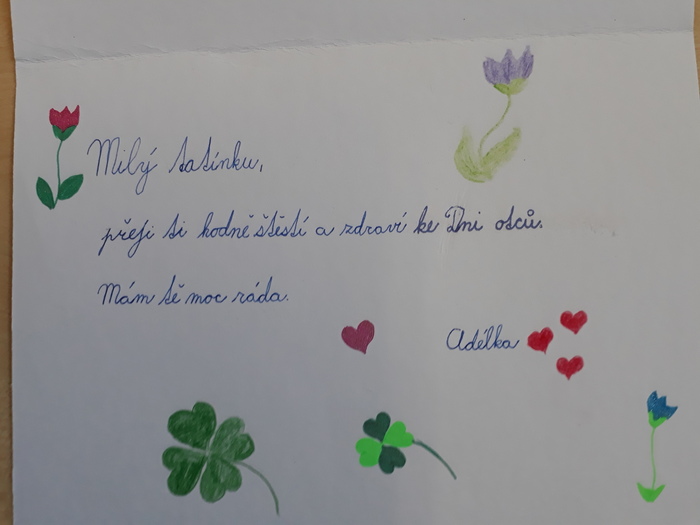 Milý tatínku,
přeji ti hodně štěstí a zdraví ke Dni otců.
Mám tě moc ráda.
Adélka